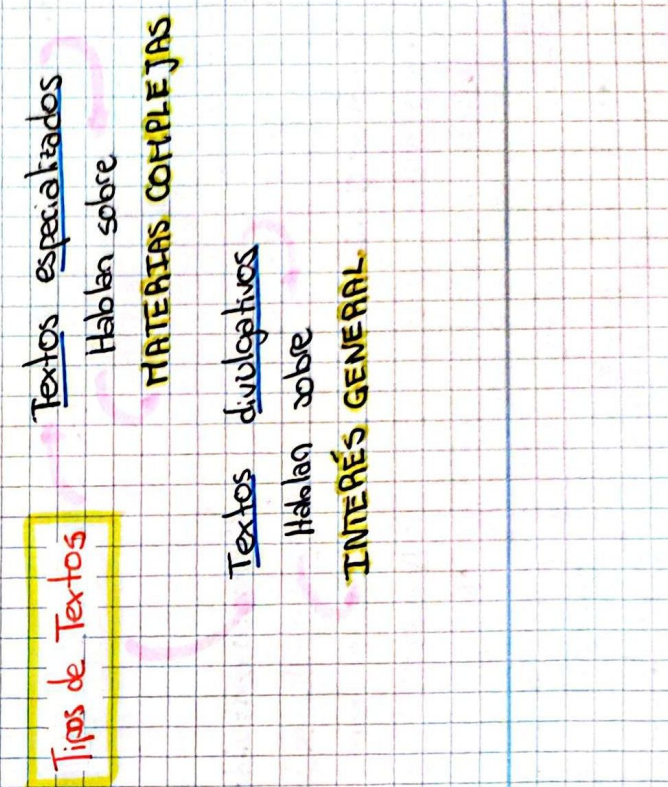 Tipos de Textos
Textos especializados
Hablan sobre
MATERIAS COMPLEJAS
Textos divulgativos
Hablan sobre
INTERÉS GENERAL.